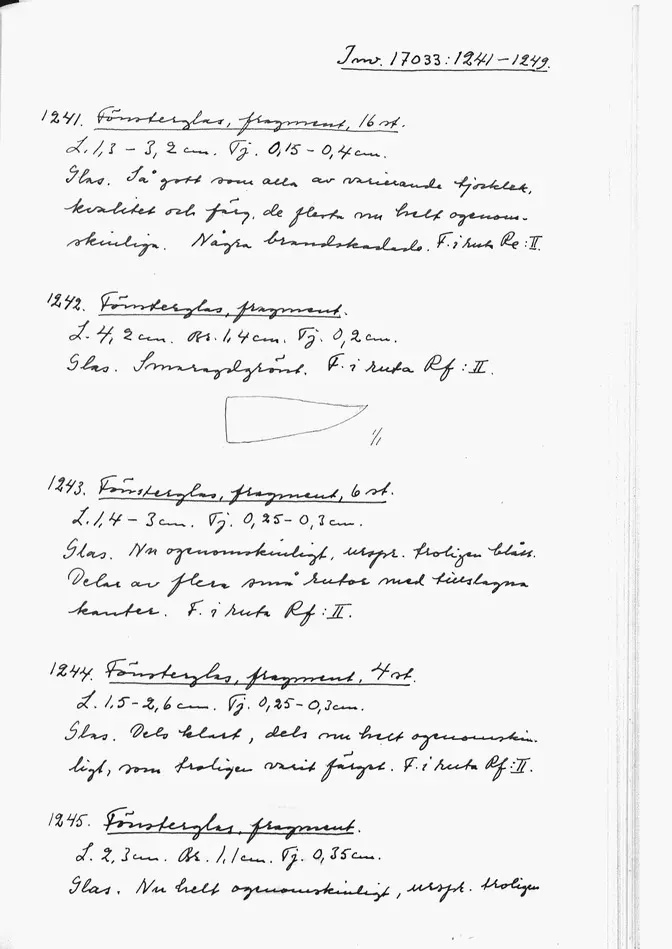 Inv. 17033:1241-1249.
1241. Fönsterglas, fragment, 16 st.
L. 1,3 - 3,2 cm. Tj. 0,15 - 0,4 cm.
Glas. Så gott som alla av varierande tjocklek,
kvalitet och färg, de flesta nu helt ogenom-
skinliga. Några brandskadade. F. i ruta Re:II.
1242. Fönsterglas, fragment.
L. 4,2 cm. Br. 1,4 cm. Tj. 0,2 cm.
Glas. Smaragdgrönt. F. i ruta Rf:II.
1/1
1243. Fönsterglas, fragment, 6 st.
L. 1,4 - 3 cm. Tj. 0,25 - 0,3 cm.
Glas. Nu ogenomskinligt, urspr. troligen blått.
Delar av flera små rutor med tillslagna
kanter. F. i ruta Rf:II.
1244. Fönsterglas, fragment, 4 st.
L. 1,5 - 2,6 cm. Tj. 0,25 - 0,3 cm.
Glas. Dels klart, dels nu helt ogenomskin-
ligt, som troligen varit färgat. F. i ruta Rf:II.
1245. Fönsterglas, fragment.
L. 2,3 cm. Br. 1,1 cm. Tj. 0,35 cm.
Glas. Nu helt ogenomskinligt, urspr. troligen